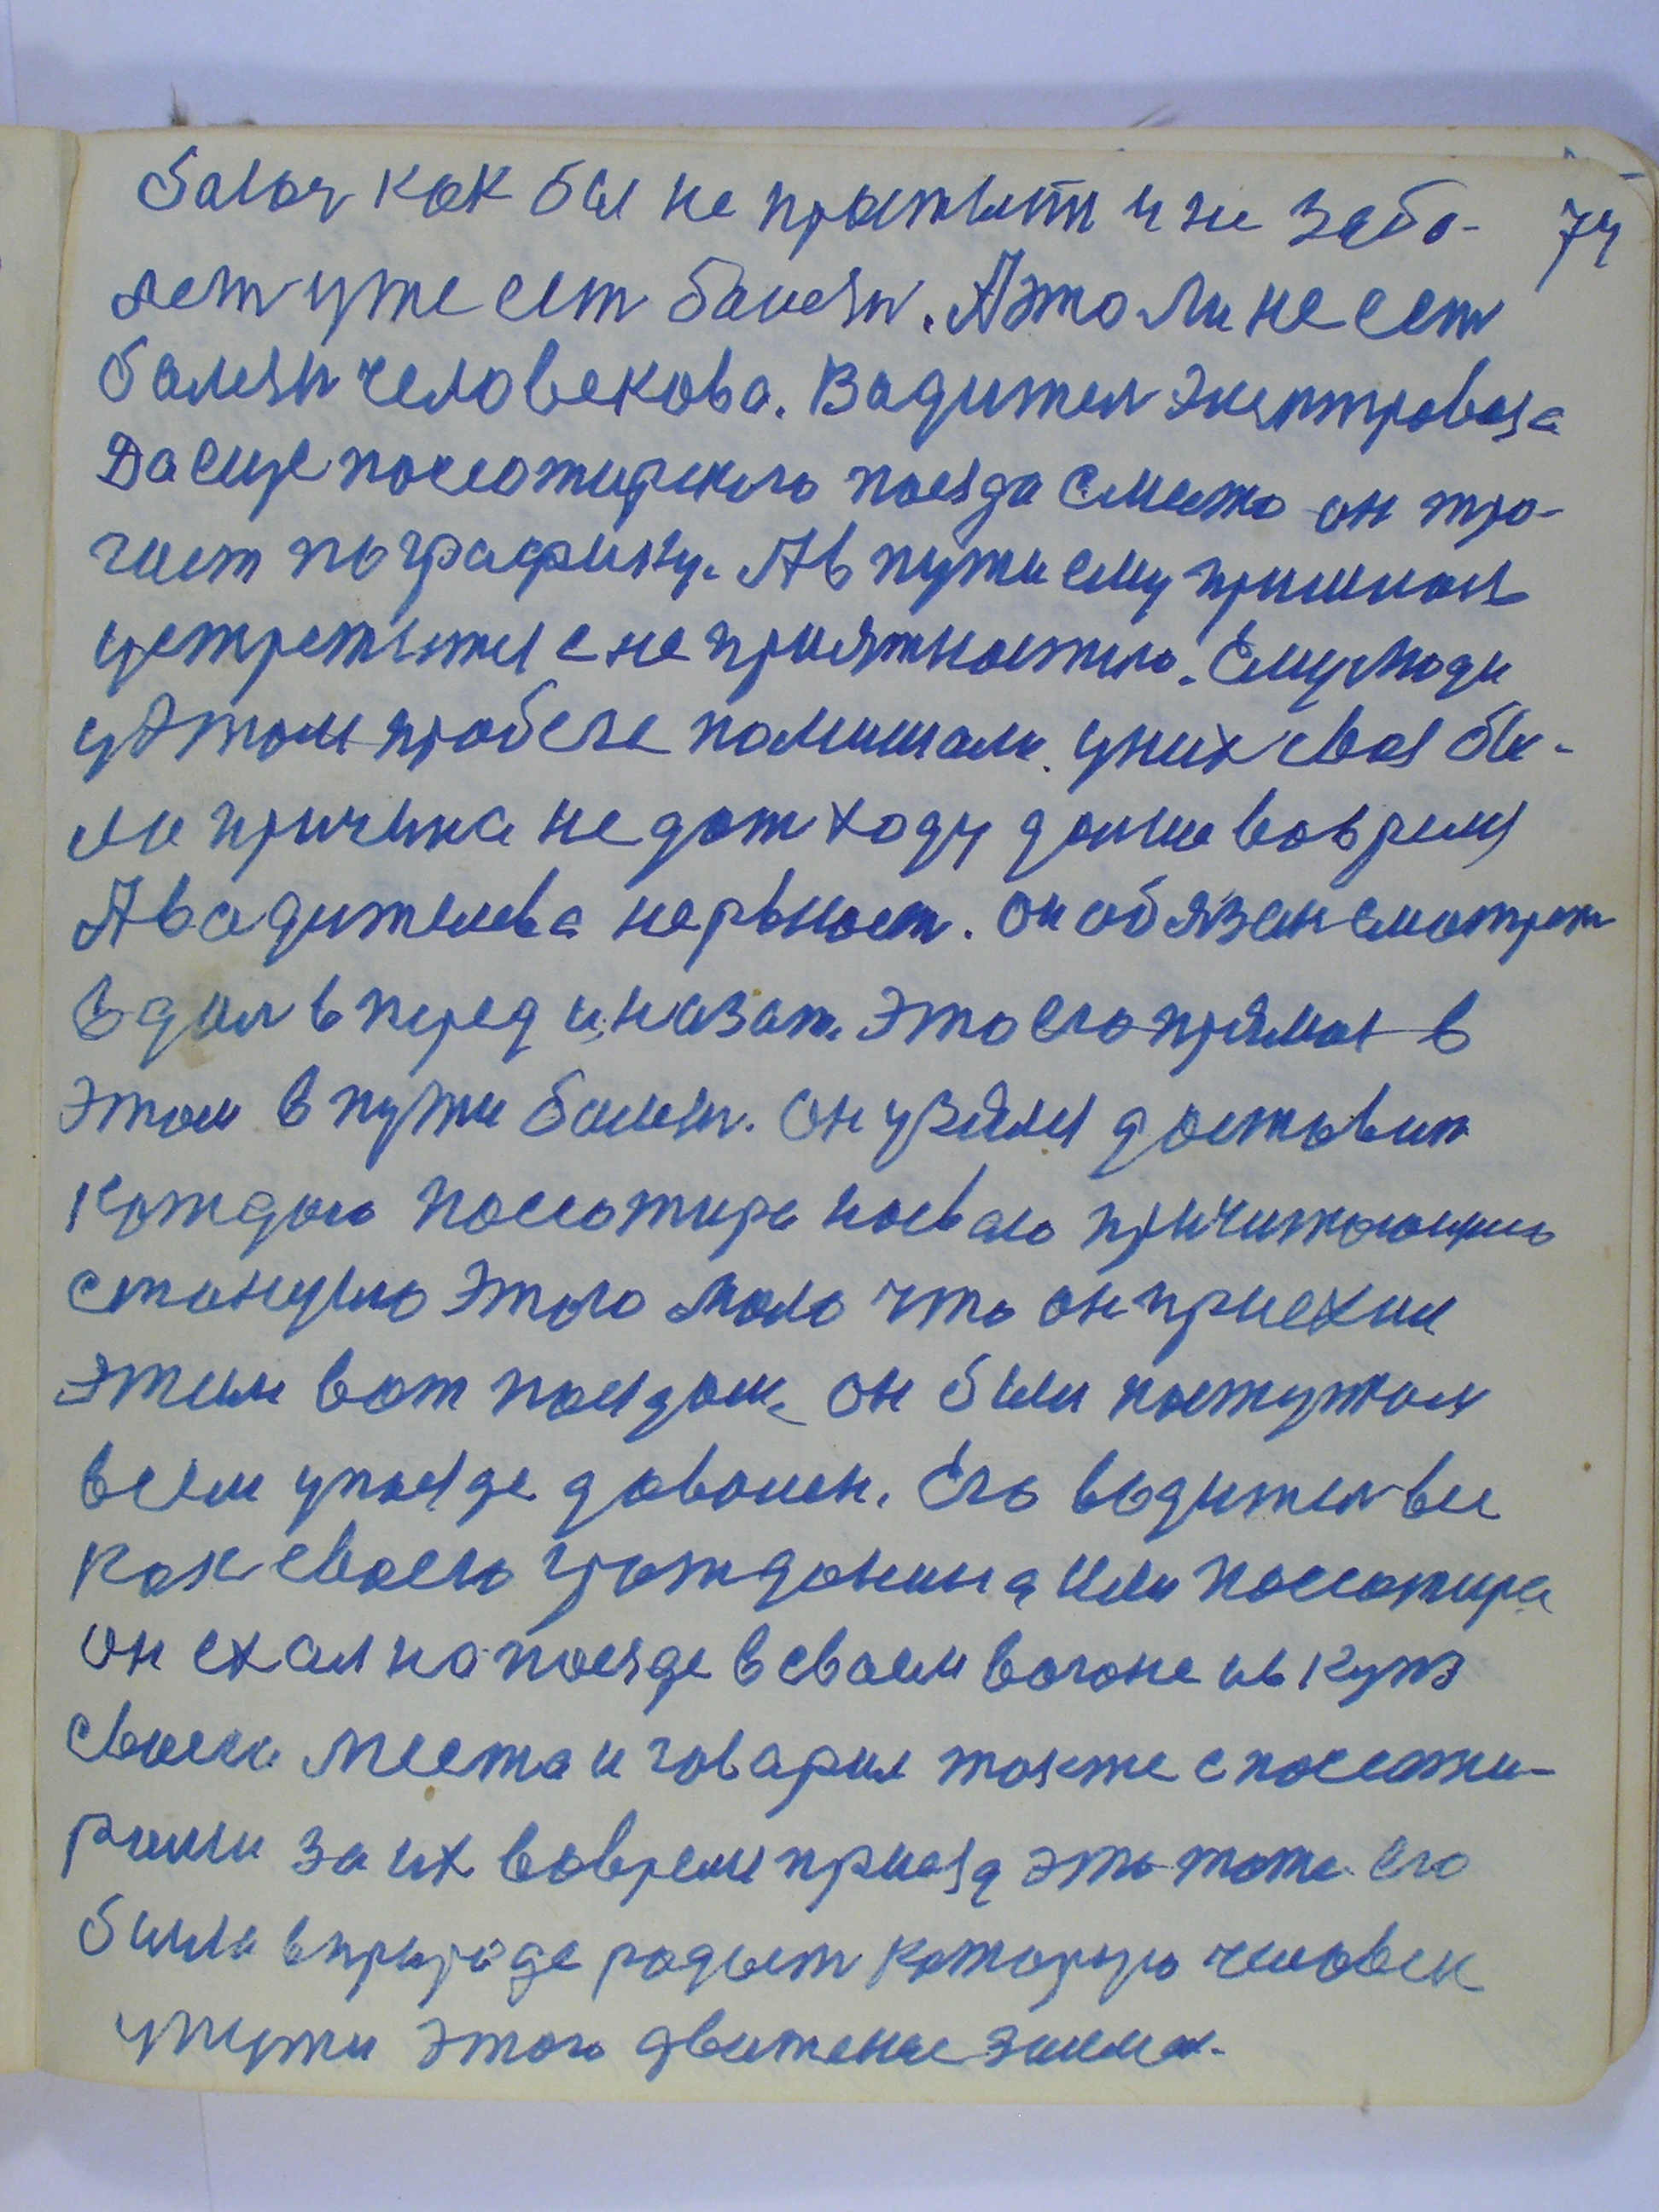 как бы не прыжыт и не забо- 74
лет уже ест балезн. А это ли не ест
балезн человекова. Вадител электровоза
Да еще пассажирского поезда смело он тро-
гает по графику. А в пути ему пришлос
устретытся с не приятностью. Ему люди
у этом пробеге помишали. у них своя бы-
ла причына не дат ходу дольше вовремя
А вадителева нервност. он обязан смотрет
в дал в перед и назат. Это его прямая в
этом в пути балезн. Он узялся доставит
каждого пассажира насваю причитающую
станцыю этого мало что он приехал
этим вот поездом. он был
всем у поезде доволен. Его водител вез
как своего гражданина или пассажира
он ехал на поезде в своем вагоне и в купэ
своем места и говарил также с пассажи-
рами за их вовремя приезд это тоже его
была в природе радост которую человек
у пути этого движение занимал.